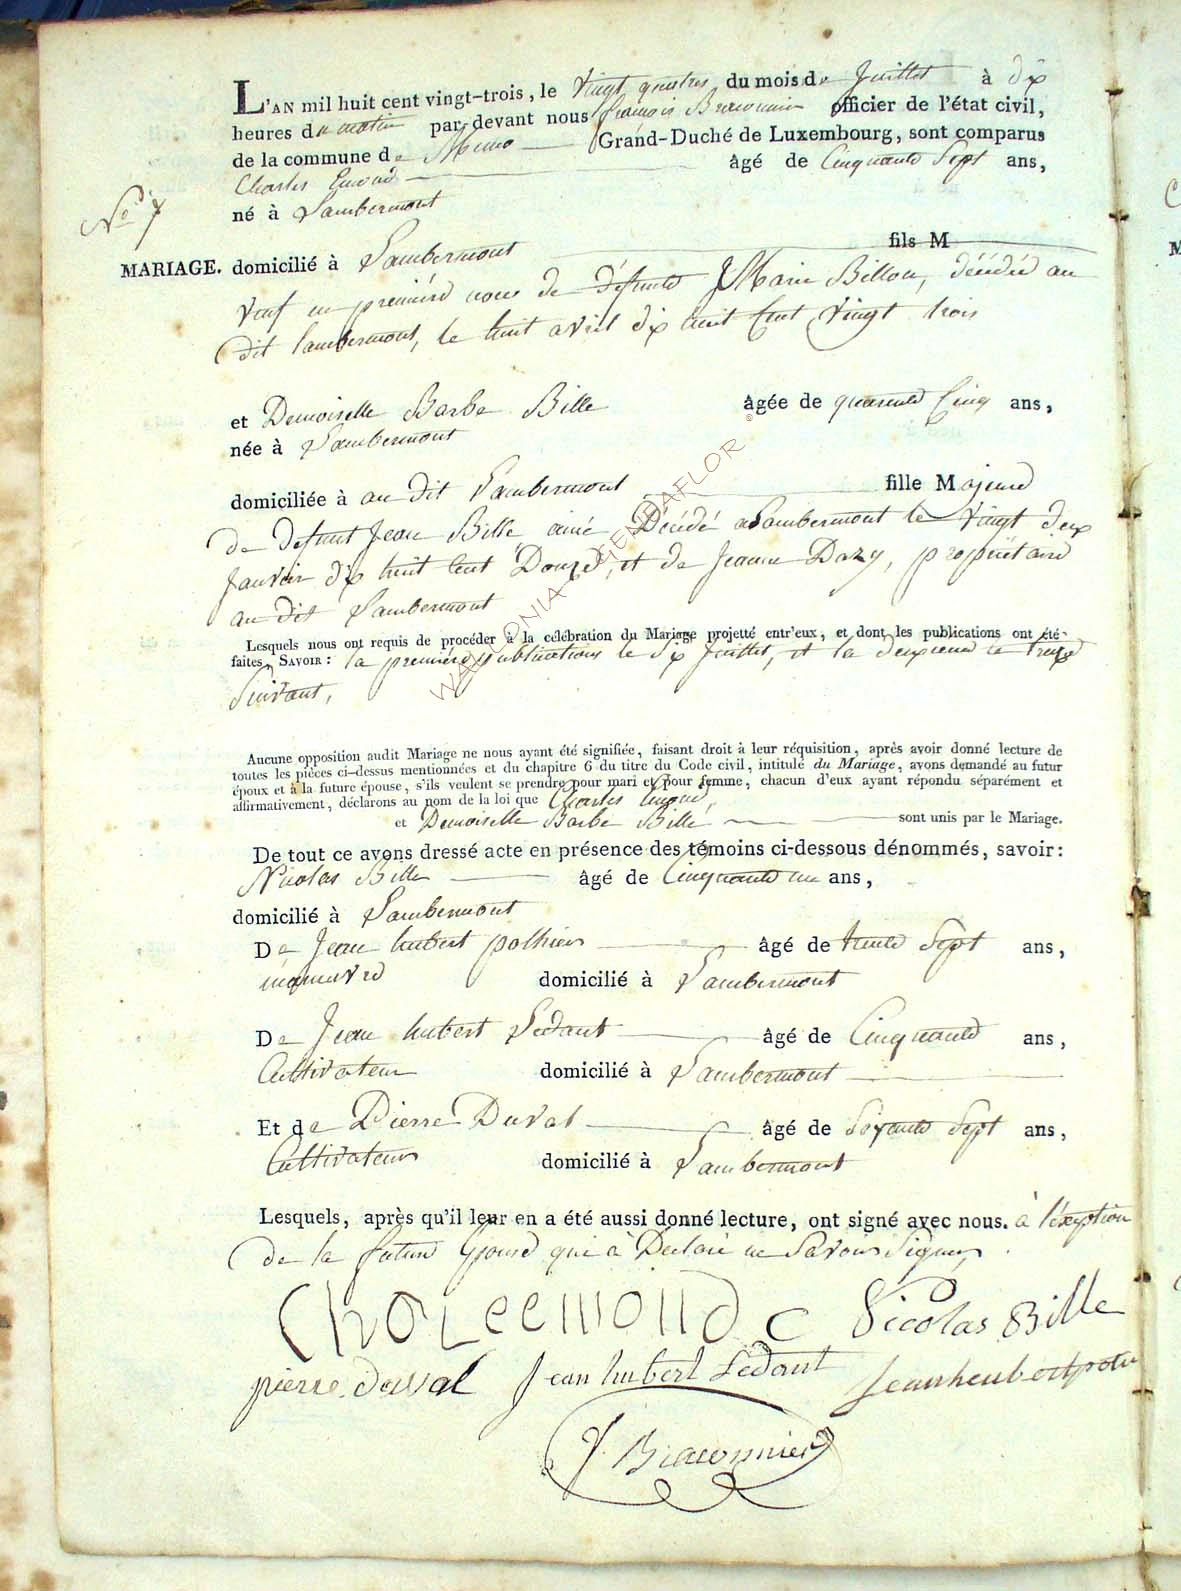 L'AN mil huit cent vingt-trois, le Vingt quatre du mois de Juillet à dix
heures du matin par-devant nous françois Braconnier officier de l'état civil,
de la commune de Muno Grand-Duché de Luxembourg, sont comparus
Charles Emond âgé de Cinquante Sept ans,
No 7
né à Lambermont
MARIAGE. domicilié à Lambermont fils M
Veuf en première noce de défunte J Marie Billon, décédée au
dit Lambermont, le huit avril dix huit Cent Vingt trois
et Demoiselle Barbe Bille âgée de quarante Cinq ans,
née à Lambermont
domiciliée à au dit Lambermont fille Majeure
de defunt Jean Bille ainé Décédé a Lambermont le Vingt deux
Janvier dix huit Cent Douze, et de Jeanne Dazy, propriétaire
au dit Lambermont
Lesquels nous ont requis de procéder à la célébration du Mariage projetté entr'eux, et dont les publications ont été
faites, SAVOIR : la première publications le Six Juillet, et la deuxieme le treize
Suivant,
Aucune opposition audit Mariage ne nous ayant été signifiée, faisant droit à leur réquisition, après avoir donné lecture de
toutes les pièces ci-dessus mentionnées et du chapitre 6 du titre du Code civil, intitulé du Mariage, avons demandé au futur
époux et à la future épouse, s'ils veulent se prendre pour mari et pour femme, chacun d'eux ayant répondu séparément et
affirmativement, déclarons au nom de la loi que Charles Emond,
et Demoiselle Barbe Bille sont unis par le Mariage.
De tout ce avons dressé acte en présence des témoins ci-dessous dénommés, savoir :
Nicolas Bille âgé de Cinquante un ans,
domicilié à Lambermont
De Jean hubert pothier âgé de trente Sept ans,
manuvre domicilié à Lambermont
De Jean hubert Ledant âgé de Cinquante ans,
Cultivateur domicilié à Lambermont
Et de Pierre Duval âgé de Soixante Sept ans,
Cultivateur domicilié à Lambermont
Lesquels, après qu'il leur en a été aussi donné lecture, ont signé avec nous. à l'exeption
de la future Epouse qui à Declaré ne Savoir Signer,
Nicolas Bille
pierre duval Jean hubert Ledant
J. Braconnier
WALLONIA © GENEAFLOR ©